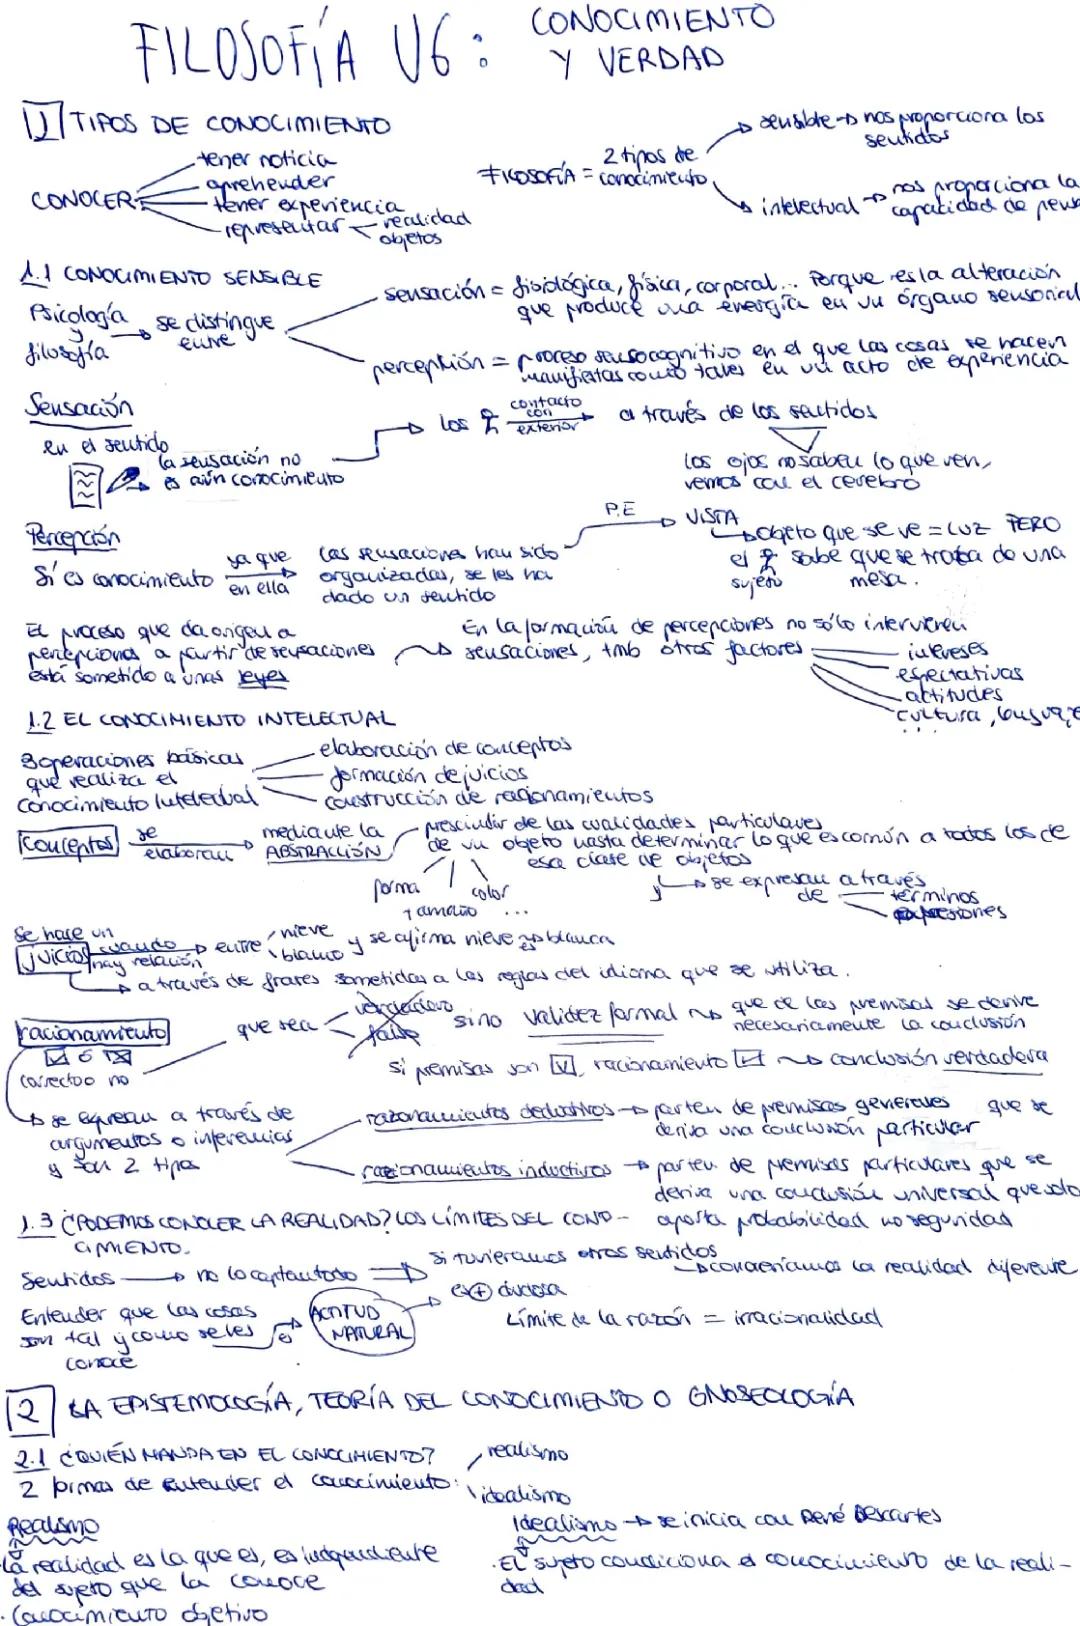 FILOSOFÍA U6: CONOCIMIENTO
Y VERDAD
1 TIPOS DE CONOCIMIENTO
CONOCER
tener noticia
aprehender
tener experiencia
representar realidad
objetos
FILOSOFÍA = 2 tipos de
conocimiento
sensible → nos proporciona los
sentidos
intelectual → nos proporciona la
capacidad de
1.1 CONOCIMIENTO SENSIBLE
Psicología
y
filosofía
→ se distingue
entre
sensación = fisiológica, física, corporal... Porque es la alteración
que produce una energía en un órgano sensorial
percepción = proceso sensocognitivo en el que las cosas se hacen
manifiestas como tales en un acto de experiencia
Sensación
en el sentido
la sensación no
es aún conocimiento
→ los
contacto
con
exterior
→ a través de los sentidos
los ojos no saben lo que ven,
vemos con el cerebro
Percepción
Sí es conocimiento
ya que
en ella
→ las sensaciones han sido
organizadas, se les ha
dado un sentido
P.E → VISTA
objeto que se ve = luz PERO
el sabe que se trata de una
sujeto mesa.
El proceso que da origen a
percepciones a partir de sensaciones
está sometido a unas leyes
En la formación de percepciones no sólo intervienen
sensaciones, tmb otros factores
intereses
expectativas
actitudes
cultura,
...
1.2 EL CONOCIMIENTO INTELECTUAL
3 operaciones básicas
que realiza el
conocimiento intelectual
elaboración de conceptos
formación de juicios
construcción de razonamientos
Conceptos se
elaboran
→ mediante la
ABSTRACCIÓN
prescindir de las cualidades particulares
de un objeto hasta determinar lo que es común a todos los de
esa clase de objetos
forma
tamaño
color
...
y → se expresan a través
de
términos
expresiones
Se hace un
juicios cuando
hay relación
→ entre nieve
blanco
y se afirma nieve es blanca
→ a través de frases sometidas a las reglas del idioma que se utiliza.
racionamiento
ó
correcto o no
que sea verdadero
falso
sino validez formal → que de las premisas se derive
necesariamente la conclusión
Si premisas son V, racionamiento → conclusión verdadera
→ se expresan a través de
argumentos o inferencias
y son 2 tipos
razonamientos deductivos → parten de premisas generales que se
deriva una conclusión particular
razonamientos inductivos → parten de premisas particulares que se
deriva una conclusión universal que solo
aporta probabilidad no seguridad
1.3 ¿PODEMOS CONOCER LA REALIDAD? LOS LÍMITES DEL CONO-
CIMIENTO.
Sentidos → no lo captan todo ⇒ Si tuviéramos otros sentidos
→ conoceríamos la realidad diferente
Entender que las cosas
son tal y como se les
conoce
→ ACTITUD
NATURAL
→ es + dudosa
Límite de la razón = irracionalidad
2 LA EPISTEMOLOGÍA, TEORÍA DEL CONOCIMIENTO O GNOSEOLOGÍA
2.1 ¿QUIÉN MANDA EN EL CONOCIMIENTO?
2 formas de entender el conocimiento:
realismo
idealismo
Realismo
· La realidad es la que es, es independiente
del sujeto que la conoce
· Conocimiento objetivo
Idealismo → se inicia con René Descartes
· El sujeto condiciona el conocimiento de la reali-
dad